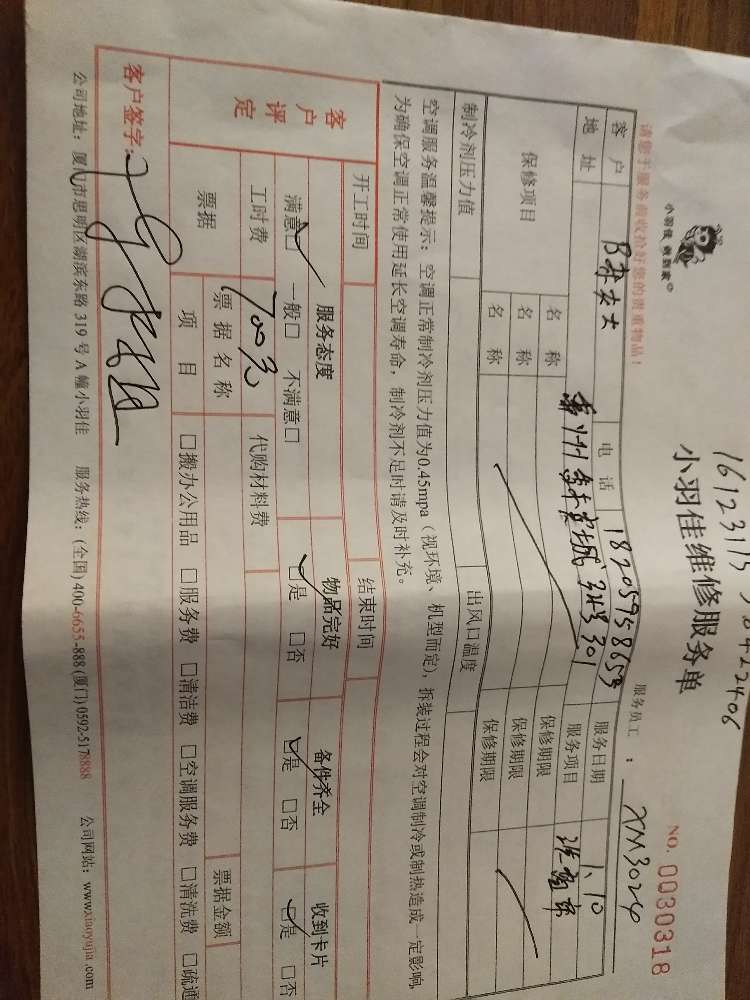 小羽佳 做到家
小羽佳维修服务单
NO. 0030318
请您于服务前收拾好您的贵重物品！
服务员工：XM3024
客户
电话 18205958653
服务日期 1.10
地址
服务项目
保修项目
名称
保修期限
名称
保修期限
名称
保修期限
制冷剂压力值
出风口温度
空调服务温馨提示：空调正常制冷剂压力值为0.45mpa（视环境、机型而定），拆装过程会对空调制冷或制热造成一定影响，
为确保空调正常使用延长空调寿命，制冷剂不足时请及时补充。
开工时间
结束时间
客户评定
服务态度
物品完好
备件齐全
收到卡片
满意☑ 一般□ 不满意□
☑是 □否
☑是 □否
☑是 □否
工时费 700元
代购材料费
票据
票据名称
票据金额
项目
□搬办公用品 □服务费 □清洁费 □空调服务费 □清洗费 □疏通
客户签字：
公司地址：厦门市思明区湖滨东路 319 号 A 幢小羽佳 服务热线：(全国) 400-6655-888 (厦门) 0592-5178888 公司网站：www.xiaoyujia.com